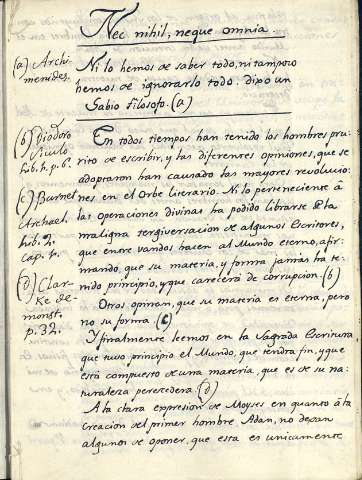 Nec nihil, neque omnia.
(a) Archi
menides.
Ni lo hemos de saber todo, ni tampoco
hemos de ignorarlo todo: dixo un
Sabio filosofo. (a)
(b) Diodoro
Siculo
lib. 1. p. 6.
(c) Burnet
Archael.
lib. 2.
cap. 1.
(d) Clar-
ke de-
monst.
p. 32.
En todos tiempos han tenido los hombres pru-
rito de escribir, y las diferentes opiniones, que se
adoptaron han causado las mayores revolucio-
nes en el Orbe literario. Ni lo perteneciente à
las operaciones divinas ha podido librarse de la
maligna tergiversacion de algunos Escritores,
que entre vandos hacen al Mundo eterno, afir-
mando, que su materia, y forma jamàs ha te-
nido principio, y que carecerà de corrupcion. (b)
Otros opinan, que su materia es eterna, pero
no su forma. (c)
Y finalmente leemos en la Sagrada Escritura,
que tuvo principio el Mundo, que tendra fin, y que
està compuesto de una materia, que es de su na-
turaleza perecedera. (d)
A la clara expresion de Moyses en quanto à la
creacion del primer hombre Adan, no dexan
algunos de oponer, que esta es unicamente